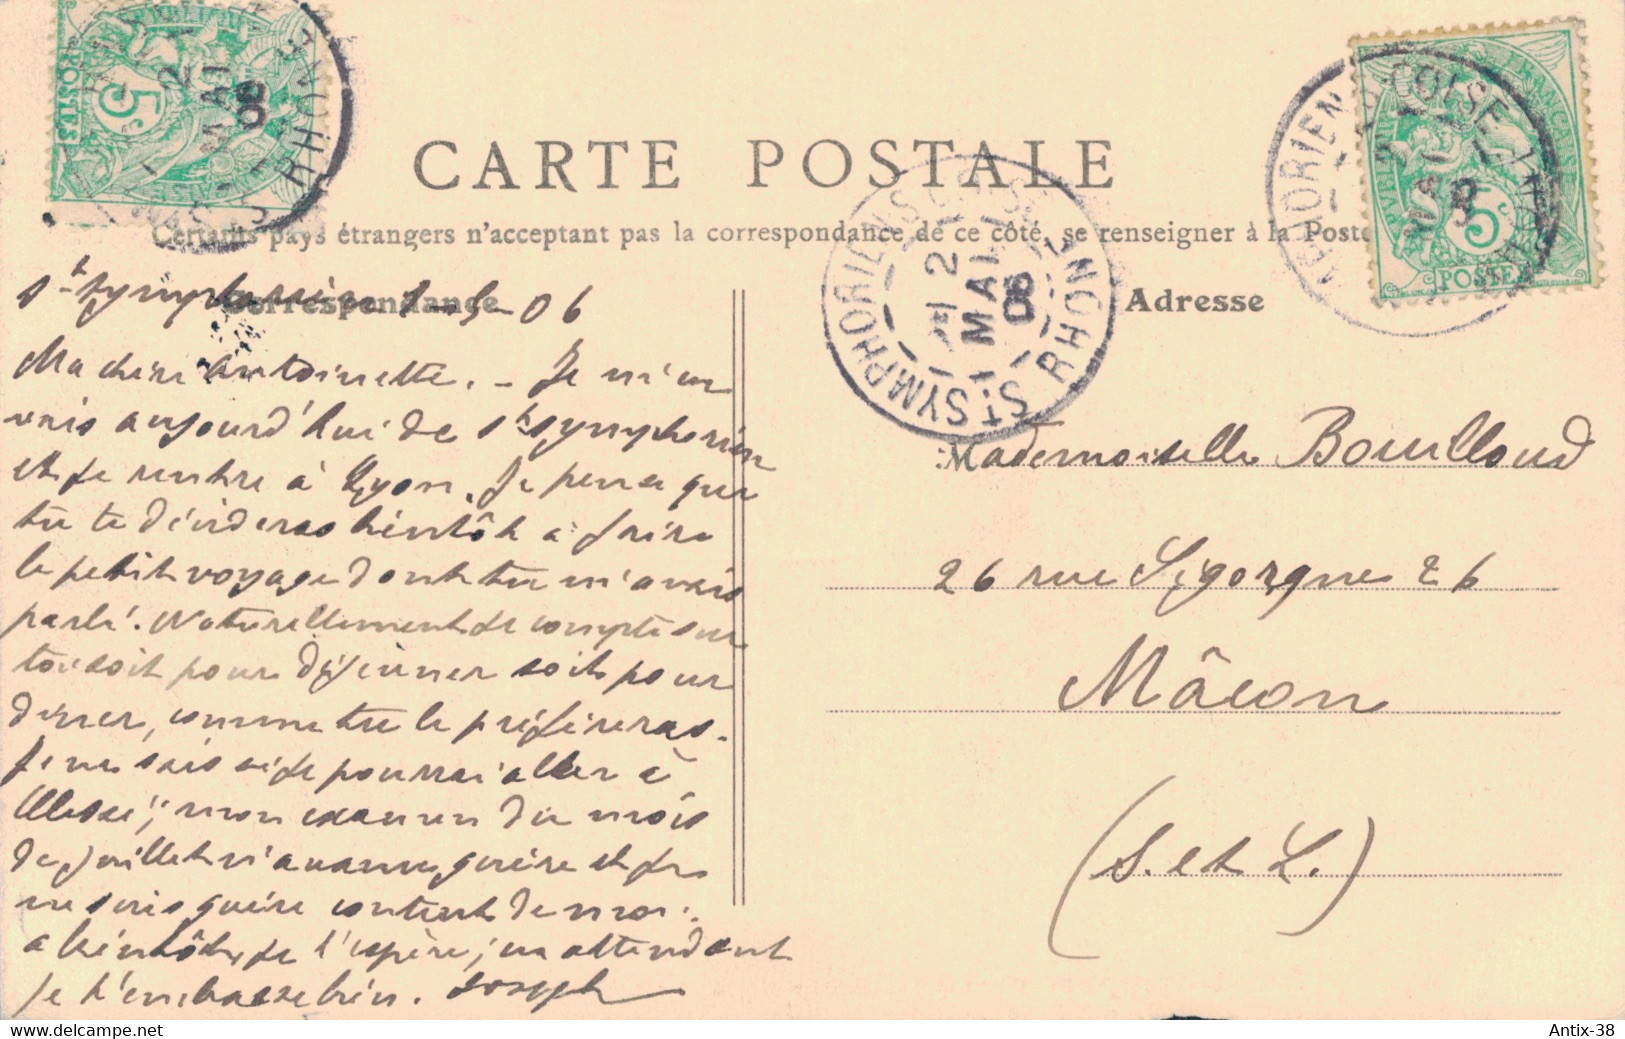 CARTE POSTALE
Certains pays étrangers n'acceptent pas la correspondance de ce côté, se renseigner à la Poste
Correspondance
Adresse
St Symphorien 2-5-06
Ma chère Antoinette. - Je m'en
vais aujourd'hui de St Symphorien
et je rentre à Lyon. Je pense que
tu te décideras bientôt à faire
le petit voyage dont tu m'avais
parlé. Naturellement je compte sur
toi soit pour déjeuner soit pour
dîner, comme tu le préfèreras.
Je ne sais si je pourrai aller à
mon examen du mois
de Juillet n'avance guère et je
ne suis guère content de moi.
à bientôt, je l'espère; en attendant
je t'embrasse bien. Joseph
Mademoiselle Bouilloud
26 rue Sigorgne 26
Mâcon
(S. et L.)
ST SYMPHORIEN S COISE
2
MAI
06
RHONE
5c
POSTES
5c
POSTES
Antix-38